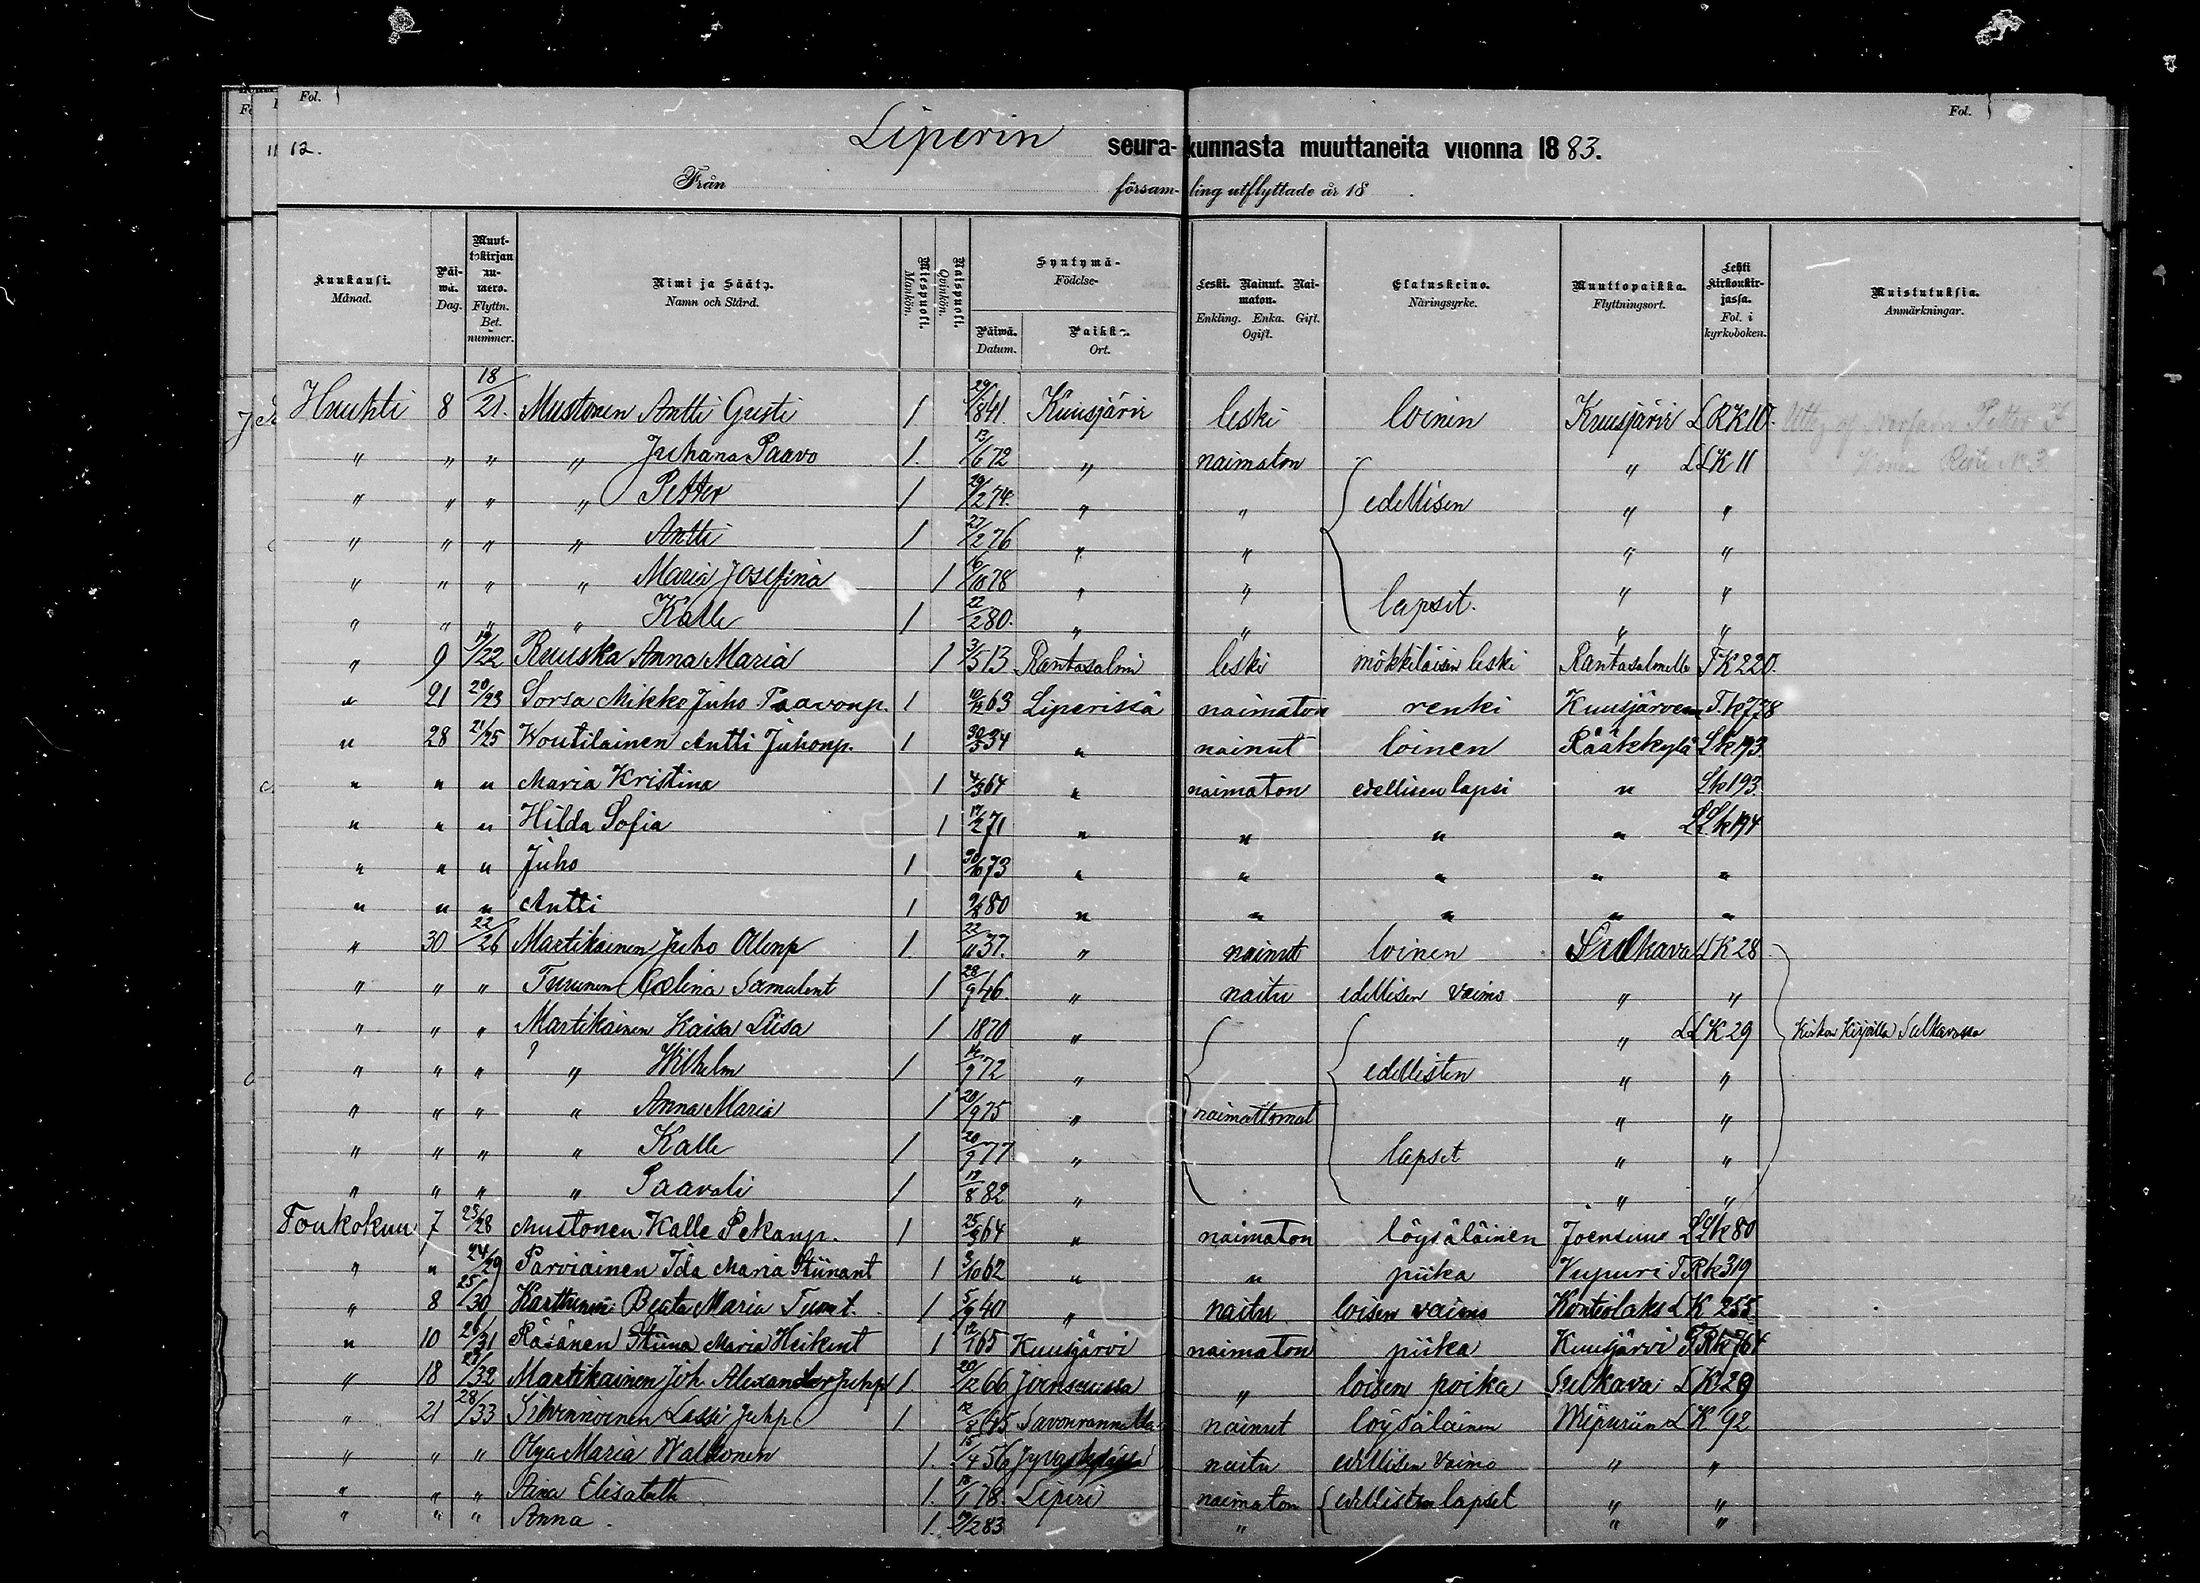 Fol. Fol.
12. Liperin seurakunnasta muuttaneita vuonna 1883.
Från församling utflyttade år 18 .
Kuukausi. Månad. Päiwä. Dag. Muuttokirjan numero. Flyttn. Bet. nummer. Nimi ja Sääty. Namn och Stånd. Miespuoli. Mankön. Naispuoli. Qvinkön. Syntymä- Födelse- Päiwä. Datum. Paikka. Ort. Leski. Nainut. Naimaton. Enkling. Enka. Gift. Ogift. Elatuskeino. Näringsyrke. Muuttopaikka. Flyttningsort. Lehti kirkonkirjassa. Fol. i kyrkoboken. Muistutuksia. Anmärkningar.
Huuhti 8 18/21. Mustonen Antti Gusti 1 1841. Kuusjärvi leski loinen Kuusjärvi LRK 10.
" " " " Juhana Paavo 1. 13/6 72 " naimaton " LLK 11
" " " " Petter 1 29/2 74. " " edellisen " "
" " " " Antti 1 27/2 76 " " " "
" " " " Maria Josefina 1 16/10 78 " " lapset. " "
" " " " Kalle 1 22/2 80. " " " "
" 9 19/22 Ruuska Anna Maria 1 3/5 13 Rantasalmi leski mökkiläisen leski Rantasalmelle TK 220.
" 21 20/23 Sorsa Mikko Juho Paavonp. 1 63 Liperissä naimaton renki Kuusjärven T.k 778
" 28 21/25 Woutilainen Antti Juhonp. 1 34 " nainut loinen Rääkkylä Lk 193
" " " Maria Kristina 1 4/3 64 " naimaton edellisen lapsi " Lk 193.
" " " Hilda Sofia 1 17/2 71 " " " " LLk 194
" " " Juho 1 30/10 73 " " " " "
" " " Antti 1 80 " " " " "
" 30 22/26 Martikainen Juho Ollinp 1. 22/11 37. " nainut loinen Sulkava LK 28
" " " Turunen Adelina Samulint 1 28/9 46. " naitu edellisen vaimo " "
" " " Martikainen Kaisa Liisa 1 1870 " " LLK 29 Kirkon Kirjoilla Sulkavassa
" " " " Wilhelm 1 14/9 72 " edellisten " "
" " " " Anna Maria 1 28/9 75 " naimattomat " "
" " " " Kalle 1 20/9 77 " lapset " "
" " " " Paavali 1 19/8 82 " " "
Toukokuu 7 23/28 Mustonen Kalle Pekanp. 1 25/3 64 " naimaton löysäläinen Joensuu LLk 80
" " 24/29 Parviainen Ida Maria Stiinant 1 3/10 62 " " piika Viipuri TRk 319
" 8 25/30 Karttunen Beata Maria Tuomt. 1 5/9 40 " naitu loisen vaimo Kontiolaks LK 255.
" 10 26/31 Räsänen Stiina Maria Heikint 1 12/1 65 Kuusjärvi naimaton piika Kuusjärvi TRk 764
" 18 27/32 Martikainen Joh Alexander Juhp 1 20/12 66 Joensuussa " loisen poika Sulkava LK 29
" 21 28/33 Sihvonen Lassi Juhp. 1. Savonrannalla nainut löysäläinen Wiipuriin LK 92
" " " Olga Maria Walkonen 1. 15/4 56 Jyväskylässä naitu edellisen vaimo " "
" " " Elisabeth 1. 78. Liperi naimaton edellisten lapset " "
" " " Anna. 1. 83 " " "